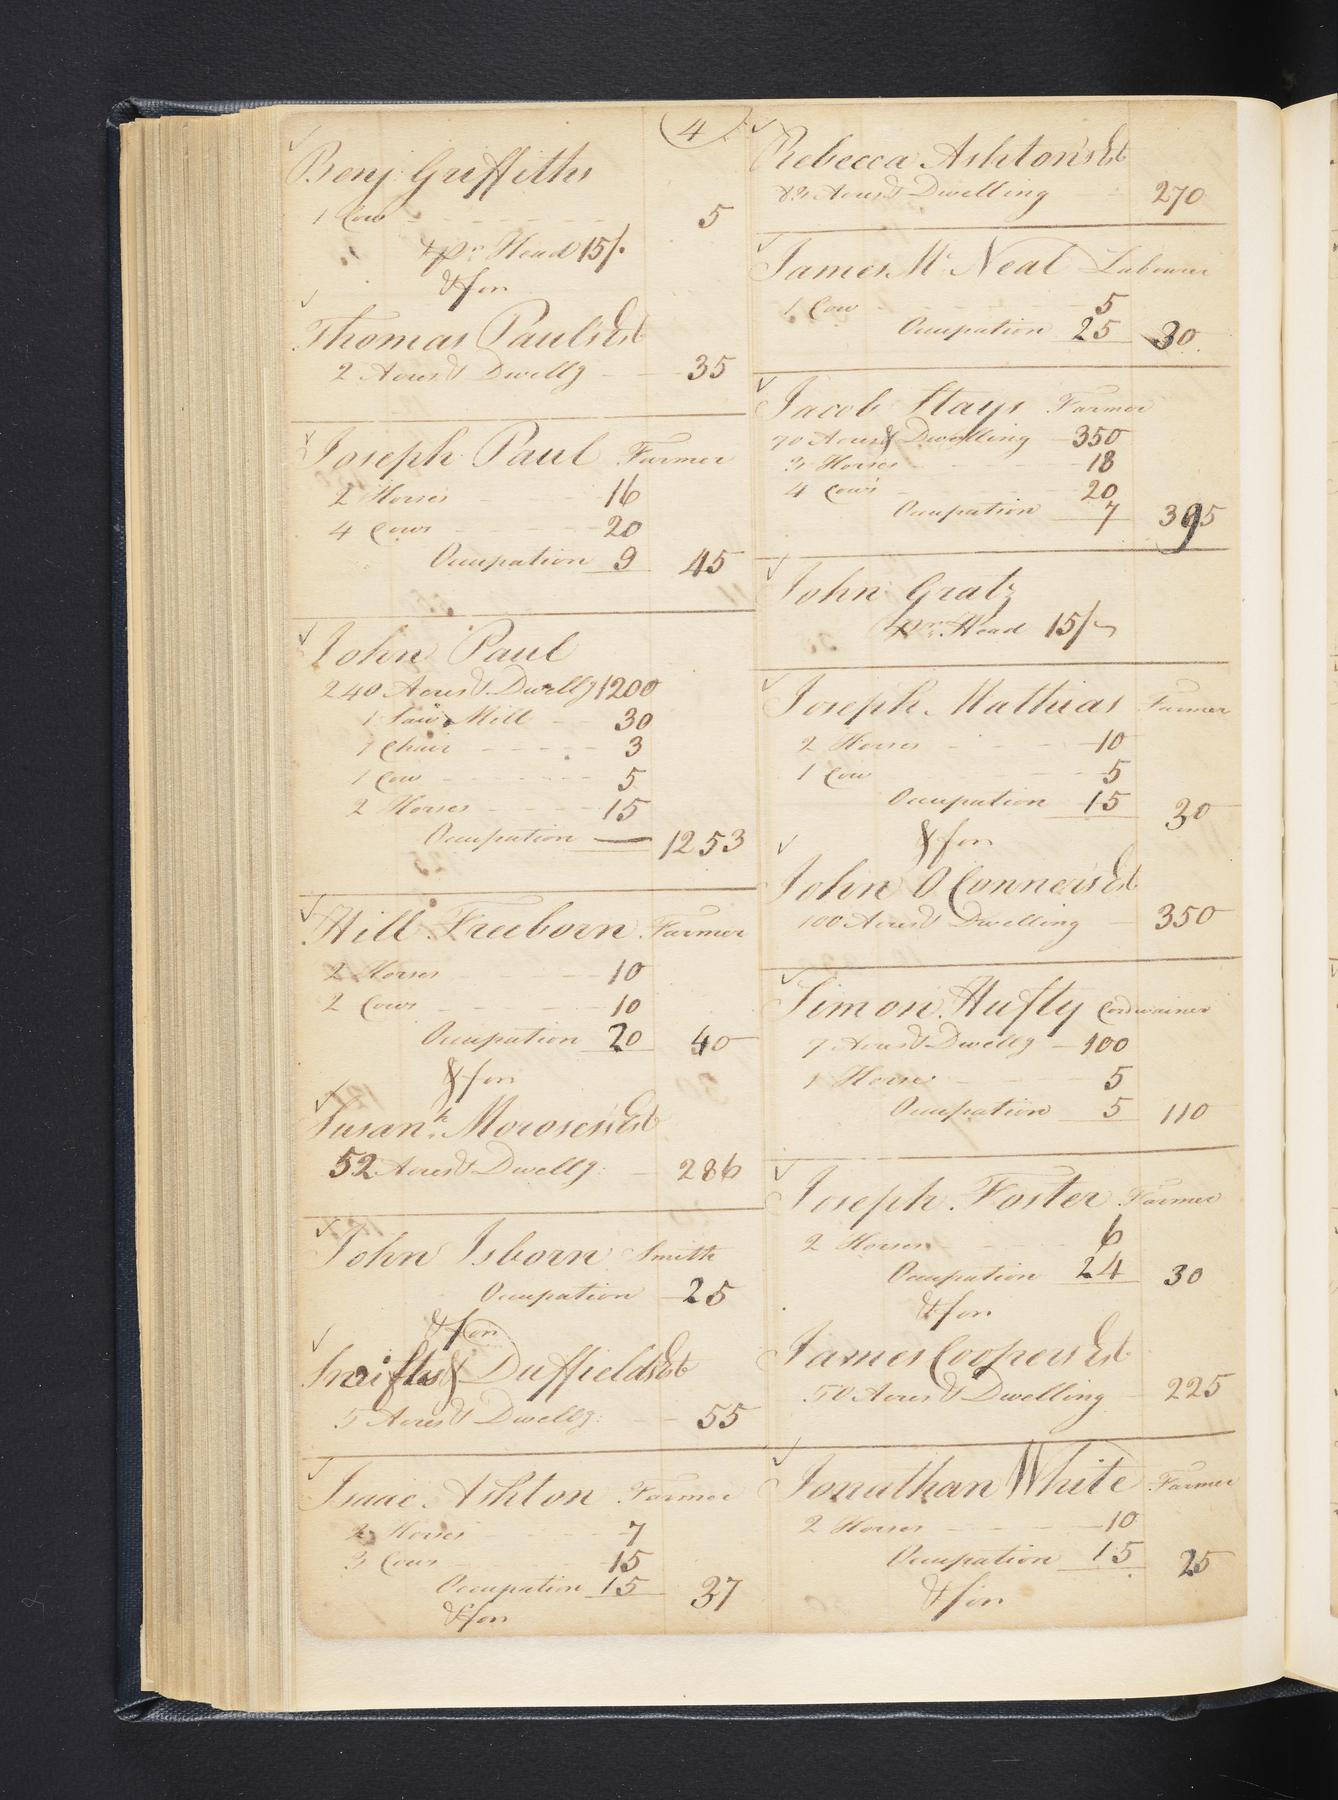 4
Benj Griffiths
1 Cow 5
& pr. Head 15/.
& for
Thomas Paul's Est
2 Acres & Dwellg 35
Joseph Paul Farmer
2 Horses 16
4 Cows 20
Occupation 9 45
John Paul
240 Acres & Dwellg 1200
1 Saw Mill 30
1 Chair 3
1 Cow 5
2 Horses 15
Occupation — 1253
Hill Freeborn Farmer
2 Horses 10
2 Cows 10
Occupation 20 40
& for
Susanh Moroses Est
52 Acres & Dwellg: 286
John Isborn Smith
Occupation 25
& for
& Duffields Est
5 Acres & Dwellg: 55
Isaac Ashton Farmer
2 Horses 7
3 Cows 15
Occupation 15 37
& for
Rebecca Ashton's Est
83 Acres & Dwelling 270
James Mc Neal Labourer
1 Cow 5
Occupation 25 30
Jacob Hays Farmer
70 Acres & Dwelling 350
3 Horses 18
4 Cows 20
Occupation 7 395
John Gratz
pr. Head 15/-
Joseph Mathias Farmer
2 Horses 10
1 Cow 5
Occupation 15 30
& for
John O Conners Est
100 Acres & Dwelling 350
Simon Hufty Cordwainer
7 Acres & Dwellg 100
1 Horse 5
Occupation 5 110
Joseph Foster Farmer
2 Horses 6
Occupation 24 30
& for
James Coopers Est
50 Acres & Dwelling 225
Jonathan White Farmer
2 Horses 10
Occupation 15 25
& for